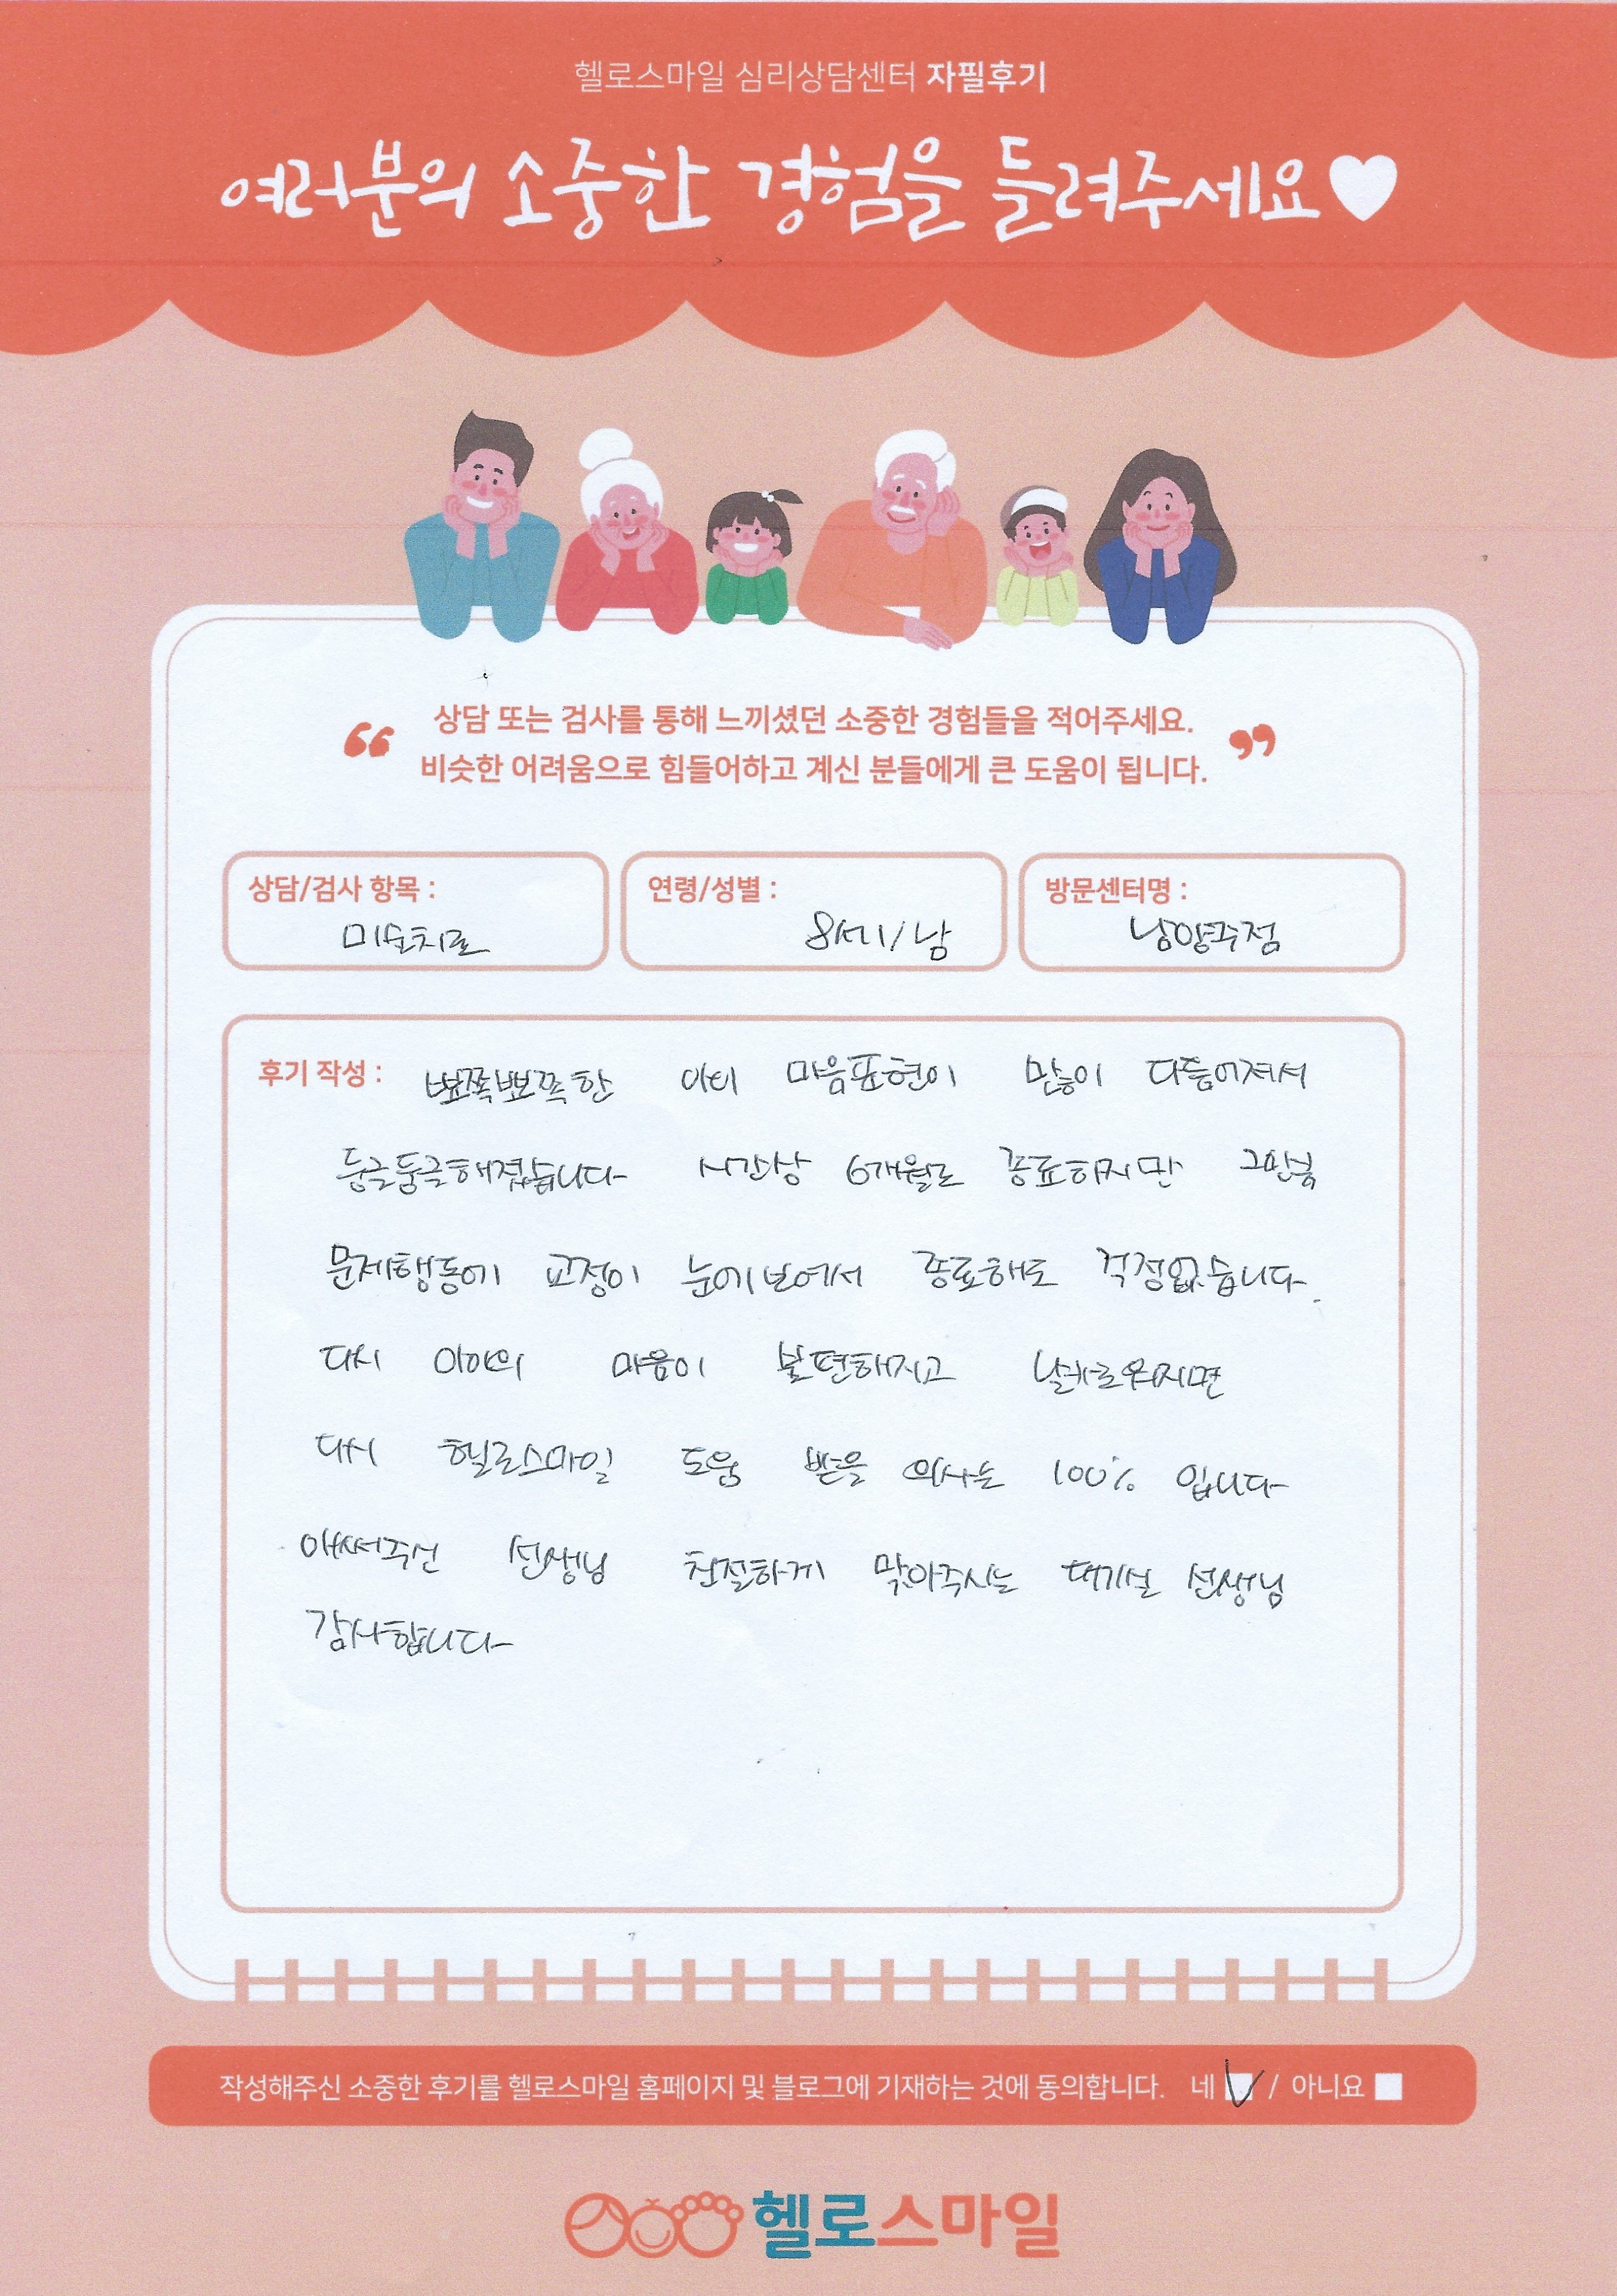 헬로스마일 심리상담센터 자필후기
여러분의 소중한 경험을 들려주세요♥
“ 상담 또는 검사를 통해 느끼셨던 소중한 경험들을 적어주세요. ”
비슷한 어려움으로 힘들어하고 계신 분들에게 큰 도움이 됩니다.
상담/검사 항목 : 연령/성별 : 방문센터명 :
미술치료 8세/남 남양주점
후기 작성 : 뾰쪽뾰쪽한 마음표현이 많이 다듬어져서
둥글둥글해졌습니다 시간상 6개월로 종료하지만 그만큼
문제행동에 교정이 눈에보여서 종료해도 걱정없습니다.
다시 아이의 마음이 불편해지고 날카로워지면
다시 헬로스마일 도움 받을 의사는 100% 입니다
애써주신 선생님 친절하게 맞아주시는 대기실 선생님
감사합니다
작성해주신 소중한 후기를 헬로스마일 홈페이지 및 블로그에 기재하는 것에 동의합니다. 네 / 아니요
헬로스마일